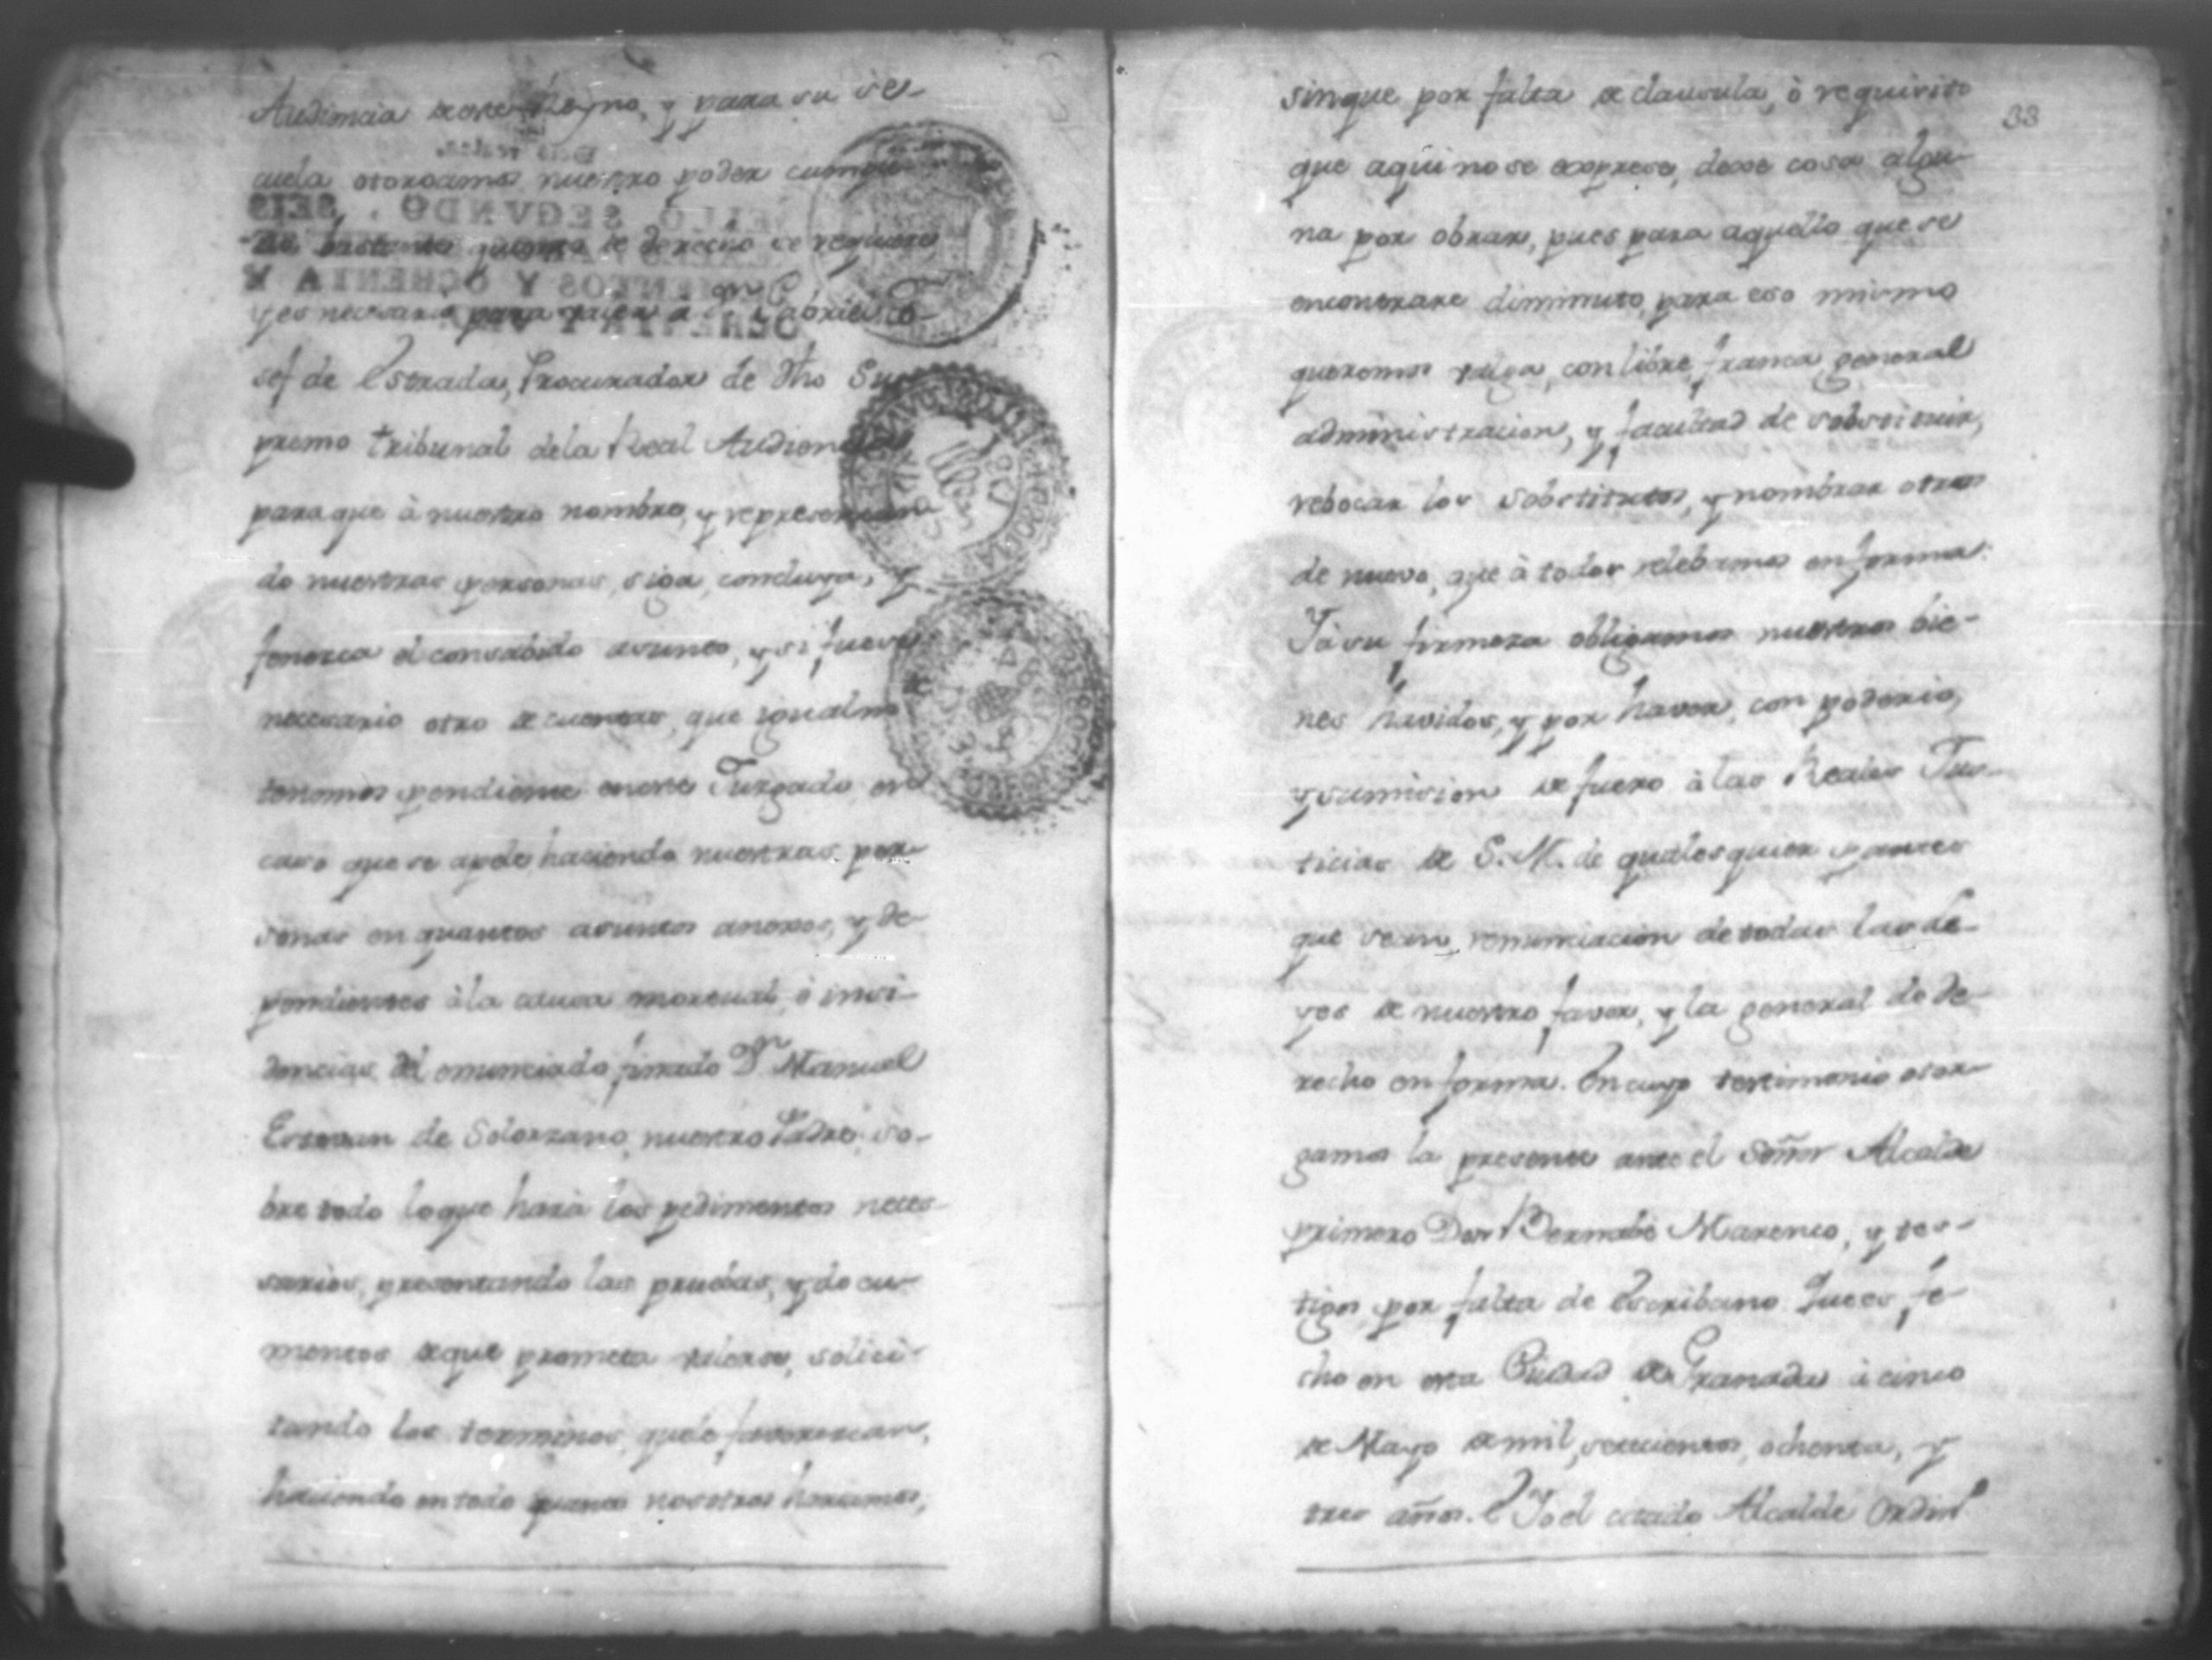 Audiencia de este Reyno, y para su se-
cuela otorgamos nuestro poder cumpli-
do bastante quanto de derecho se requiere
y es necesario para valer a Dn. Gabriel Jo-
sef de Estrada, Procurador de dho Su-
premo tribunal dela Real Audiencia
para que à nuestro nombre, y representan-
do nuestras personas, siga, conduzca, y
fenezca el consabido asunto, y si fuere
necesario otro de cuentas, que igualmte
tenemos pendiente eneste Juzgado, en
caso que se apele haciendo nuestras per-
sonas en quantos asuntos anexos, y de-
pendientes àla causa mortual, è inci-
dencias del enunciado finado Dn. Manuel
Estevan de Solorzano, nuestro Padre, so-
bre todo loque harà los pedimentos neces-
sarios, presentando las pruebas, y docu-
mentos deque prometa valerse, solici-
tando los terminos, quele favorezcan,
haciendo en todo quanto nosotros hariamos,
33
sinque por falta de clausula, ò requisito
que aqui no se exprese, dexe cosa algu-
na por obrar, pues para aquello que se
encontrare diminuto, para eso mismo
queremos valga, con libre, franca, general
administracion, y facultad de sobstituir,
rebocar los sobstitutos, y nombrar otros
de nuevo, que à todos relebamos en forma.
Ià su firmeza obligamos nuestros bie-
nes havidos, y por haver, con poderio,
y sumision de fuero à las Reales Jus-
ticias de S. M. de qualesquier partes
que sean, renunciacion de todas las le-
yes de nuestro favor, y la general de de-
recho en forma. En cuyo testimonio otor-
gamos la presente ante el Señor Alcalde
primero Don Bernabè Marenco, y tes-
tigos por falta de Escribano. Que es fe-
cho en esta Ciudad de Granada à cinco
de Mayo de mil, setecientos, ochenta, y
tres años. E Yo el citado Alcalde Ordino